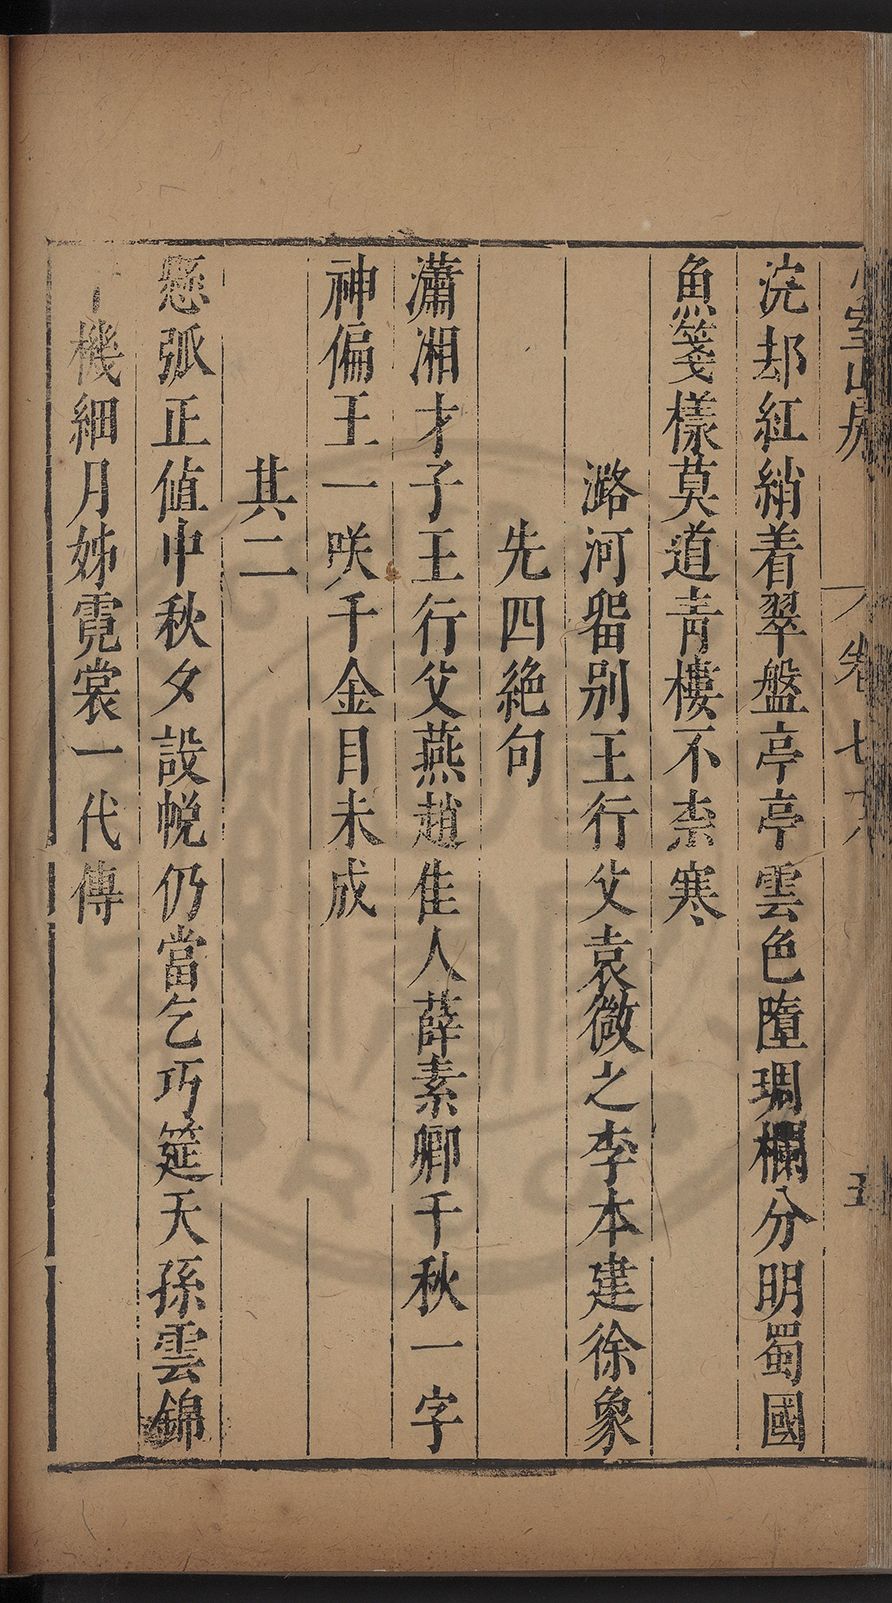 室山房 卷七 五
浣却紅綃着翠盤亭亭雲色墮琱欄分明蜀國
魚箋樣莫道青樓不柰寒
潞河畱别王行父袁微之李本建徐象
先四絶句
瀟湘才子王行父燕趙佳人薛素卿千秋一字
神偏王一咲千金目未成
其二
懸弧正値中秋夕設帨仍當乞巧筵天孫雲錦
機細月姊霓裳一代傳